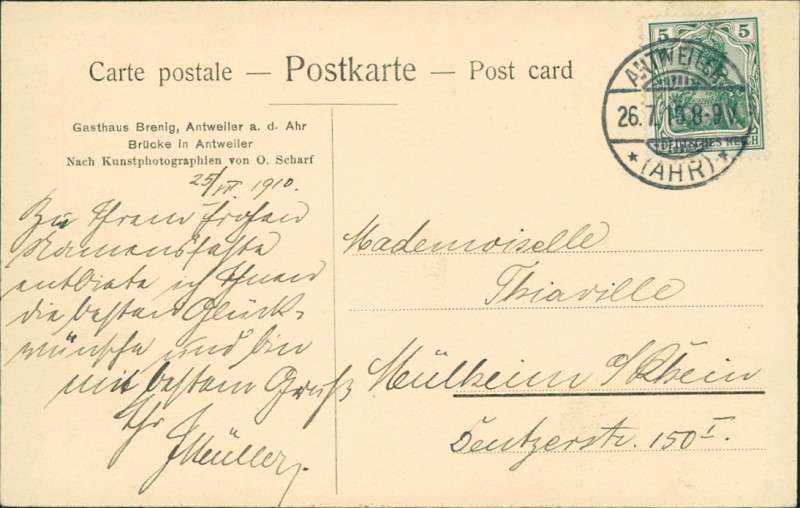 Carte postale — Postkarte — Post card
5 5
DEUTSCHES REICH
ANTWEILER
26.7.10.8-9V.
* (AHR) *
Gasthaus Brenig, Antweiler a. d. Ahr
Brücke in Antweiler
Nach Kunstphotographien von O. Scharf
25/VII 1910.
Zu Ihrem frohen
Namensfeste
entbiete ich Ihnen
die besten Glück-
wünsche und bin
mit bestem Gruß
Ihr
J Müller.
Mademoiselle
Thiaville
Mülheim a/Rhein
Deutzerstr. 150 I.